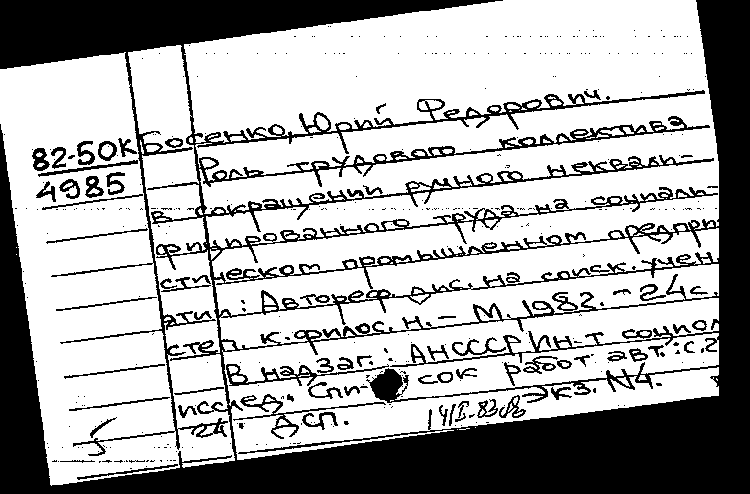 82-50К Босенко, Юрий Федорович.
4985 Роль трудового коллектива
в сокращении ручного неквали-
фицированного труда на социаль-
стическом промышленном предпри-
ятии: Автореф. дис. на соиск. учен.
степ. к. филос. н. - М., 1982. - 24 с.
В надзаг.: АНСССР, Ин-т социол
исслед. Спи- сок работ авт.: с. 2
24. ДСП. Экз. N4.
5